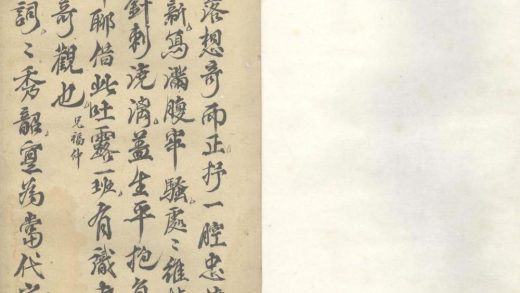 落想奇而正抒一腔忠
新寫滿腹牢騷處〻維
針刺澆漓蓋生平抱負
聊借此吐露一班有識
奇觀也 兄福仲
詞〻秀韶寔為當代